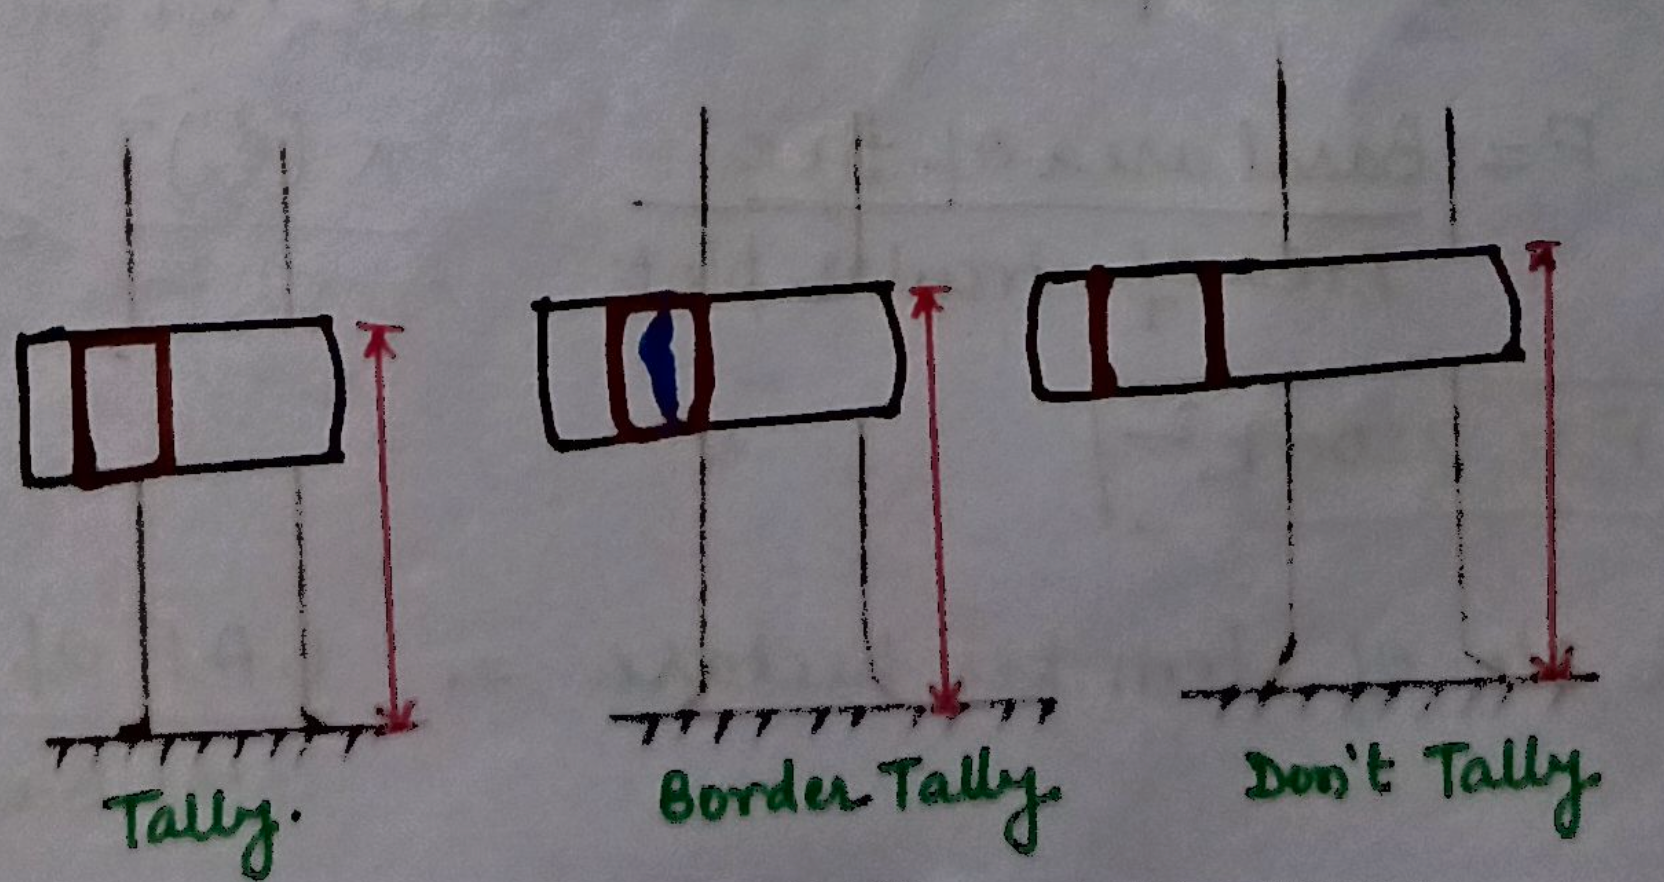 Tally.
Border Tally.
Don't Tally.